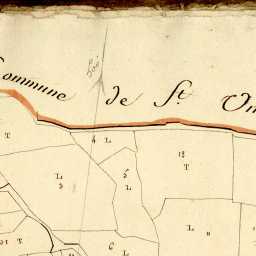 Commune de St. Om
T
4 L
12
T
L
3
5
L
L
T
21 T
6
L